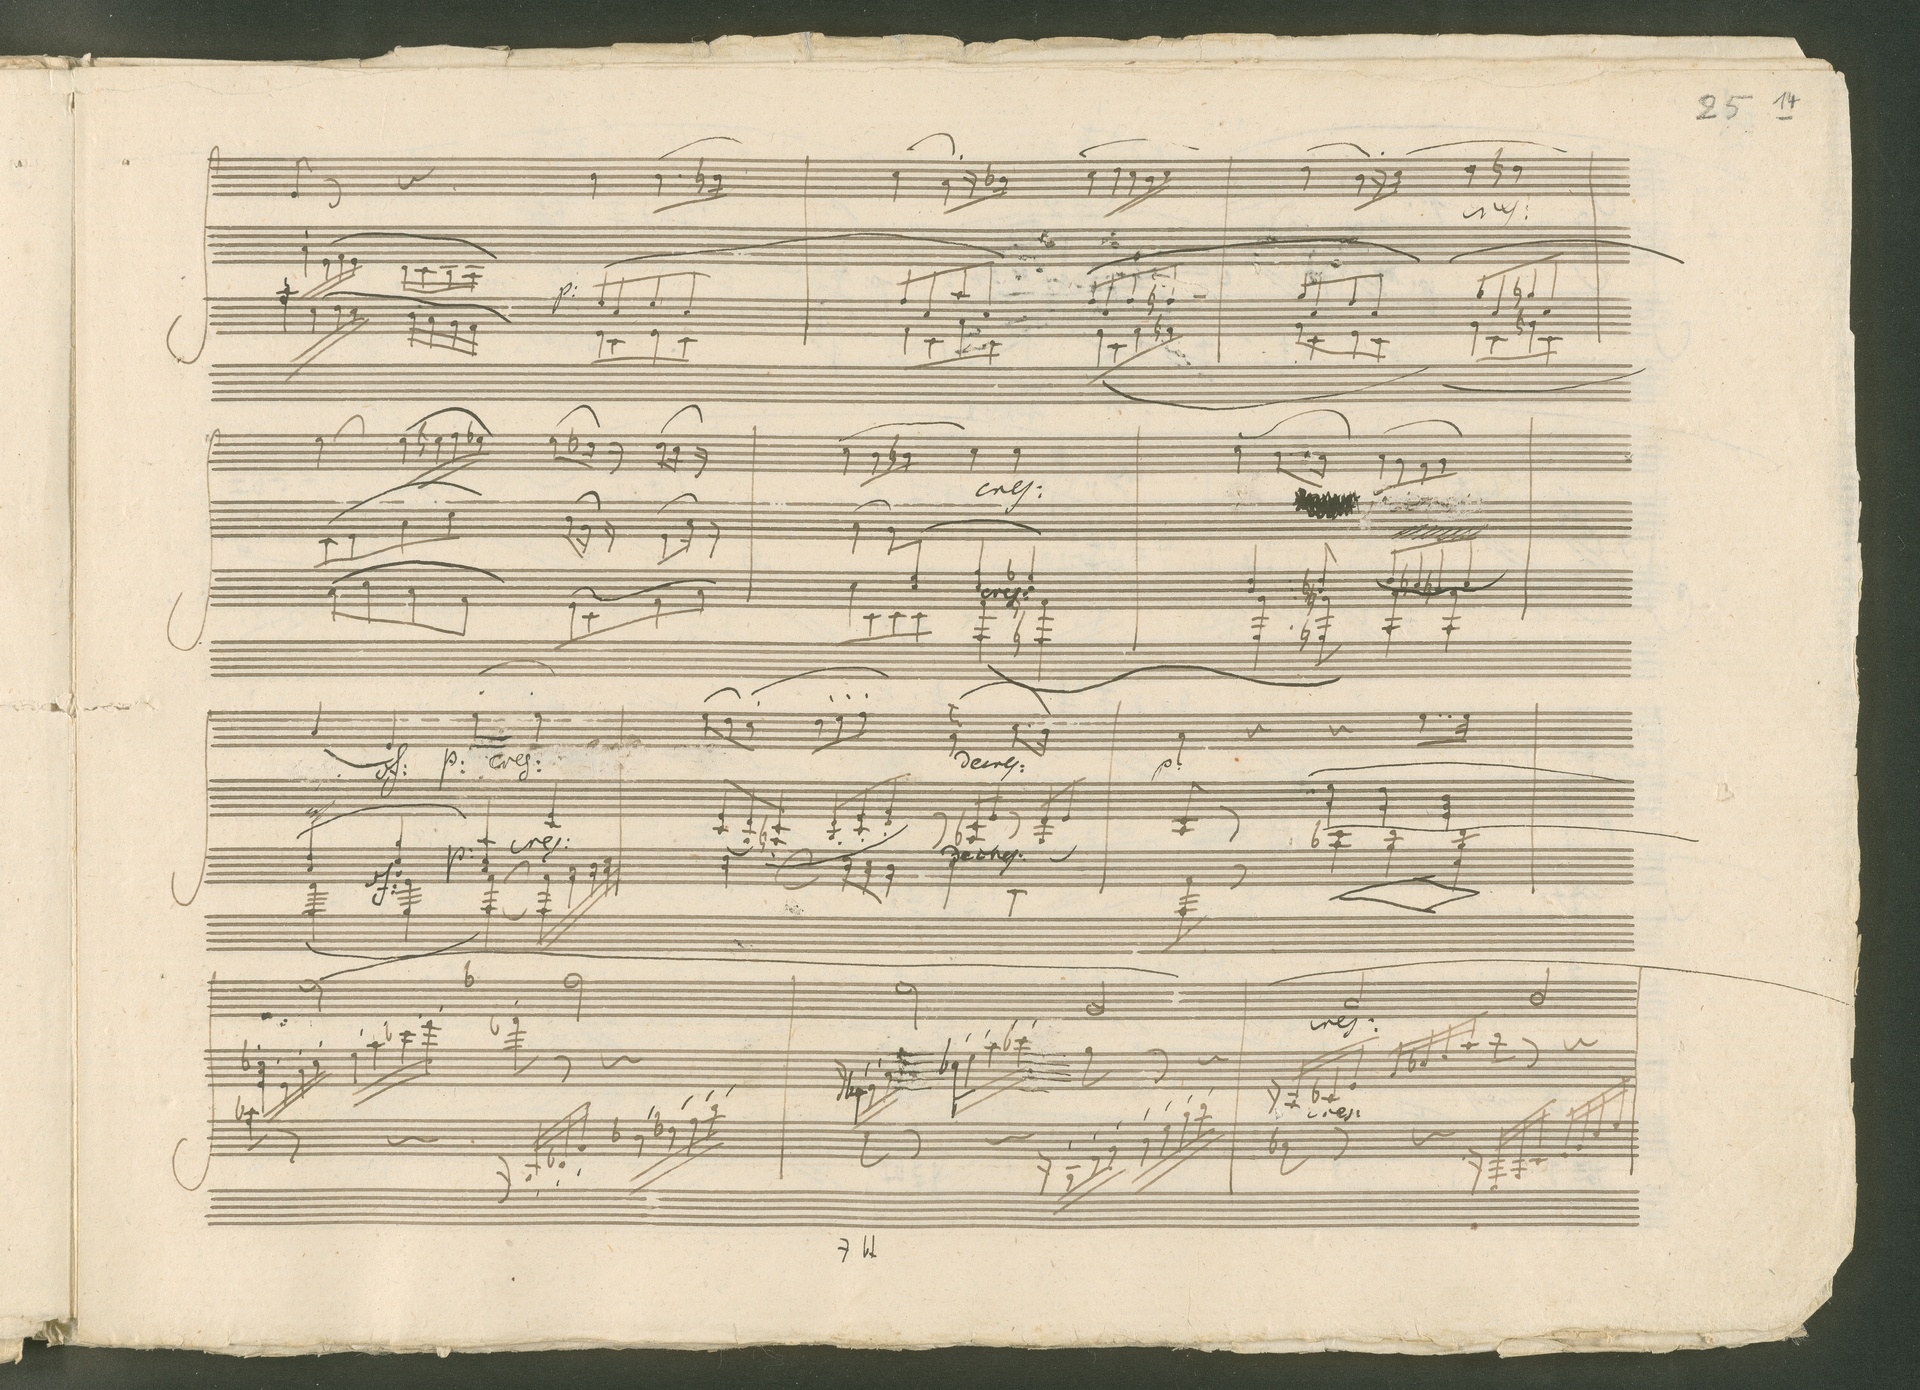 25 14
cres:
p:
cres:
cres:
sf: p: cres: decres: p:
p: cres:
sf: decres:
cres:
cres: